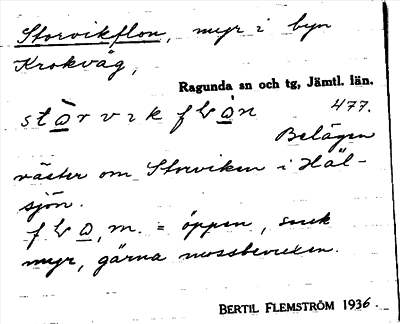 Storvikflon, myr i byn
Krokvåg,
Ragunda sn och tg, Jämtl. län.
477.
Belägen
väster om Storviken i Häl-
sjön.
m. = öppen, smek
myr, gärna mossbevuxen.
BERTIL FLEMSTRÖM 1936.